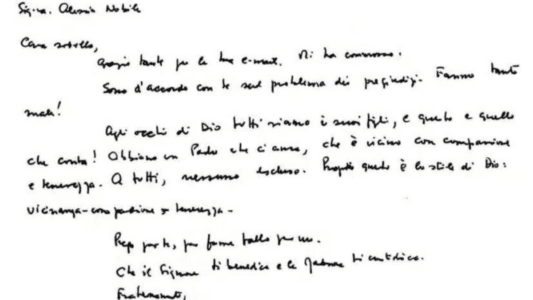 Sig.na. Alessia Nobile
Cara sorella,
grazie tante per la tua e-mail. Mi ha commosso.
Sono d'accordo con te sul problema dei pregiudizi. Fanno tanto
male!
Agli occhi di Dio tutti siamo i suoi figli, e questo è quello
che conta! Abbiamo un Padre che ci ama, che è vicino con compassione
e tenerezza. A tutti, nessuno escluso. Proprio questo è lo stile di Dio:
vicinanza-compassione e tenerezza-
Prego per te, per favore fallo per me.
Che il Signore ti benedica e la Madonna ti custodisca.
Fraternamente,